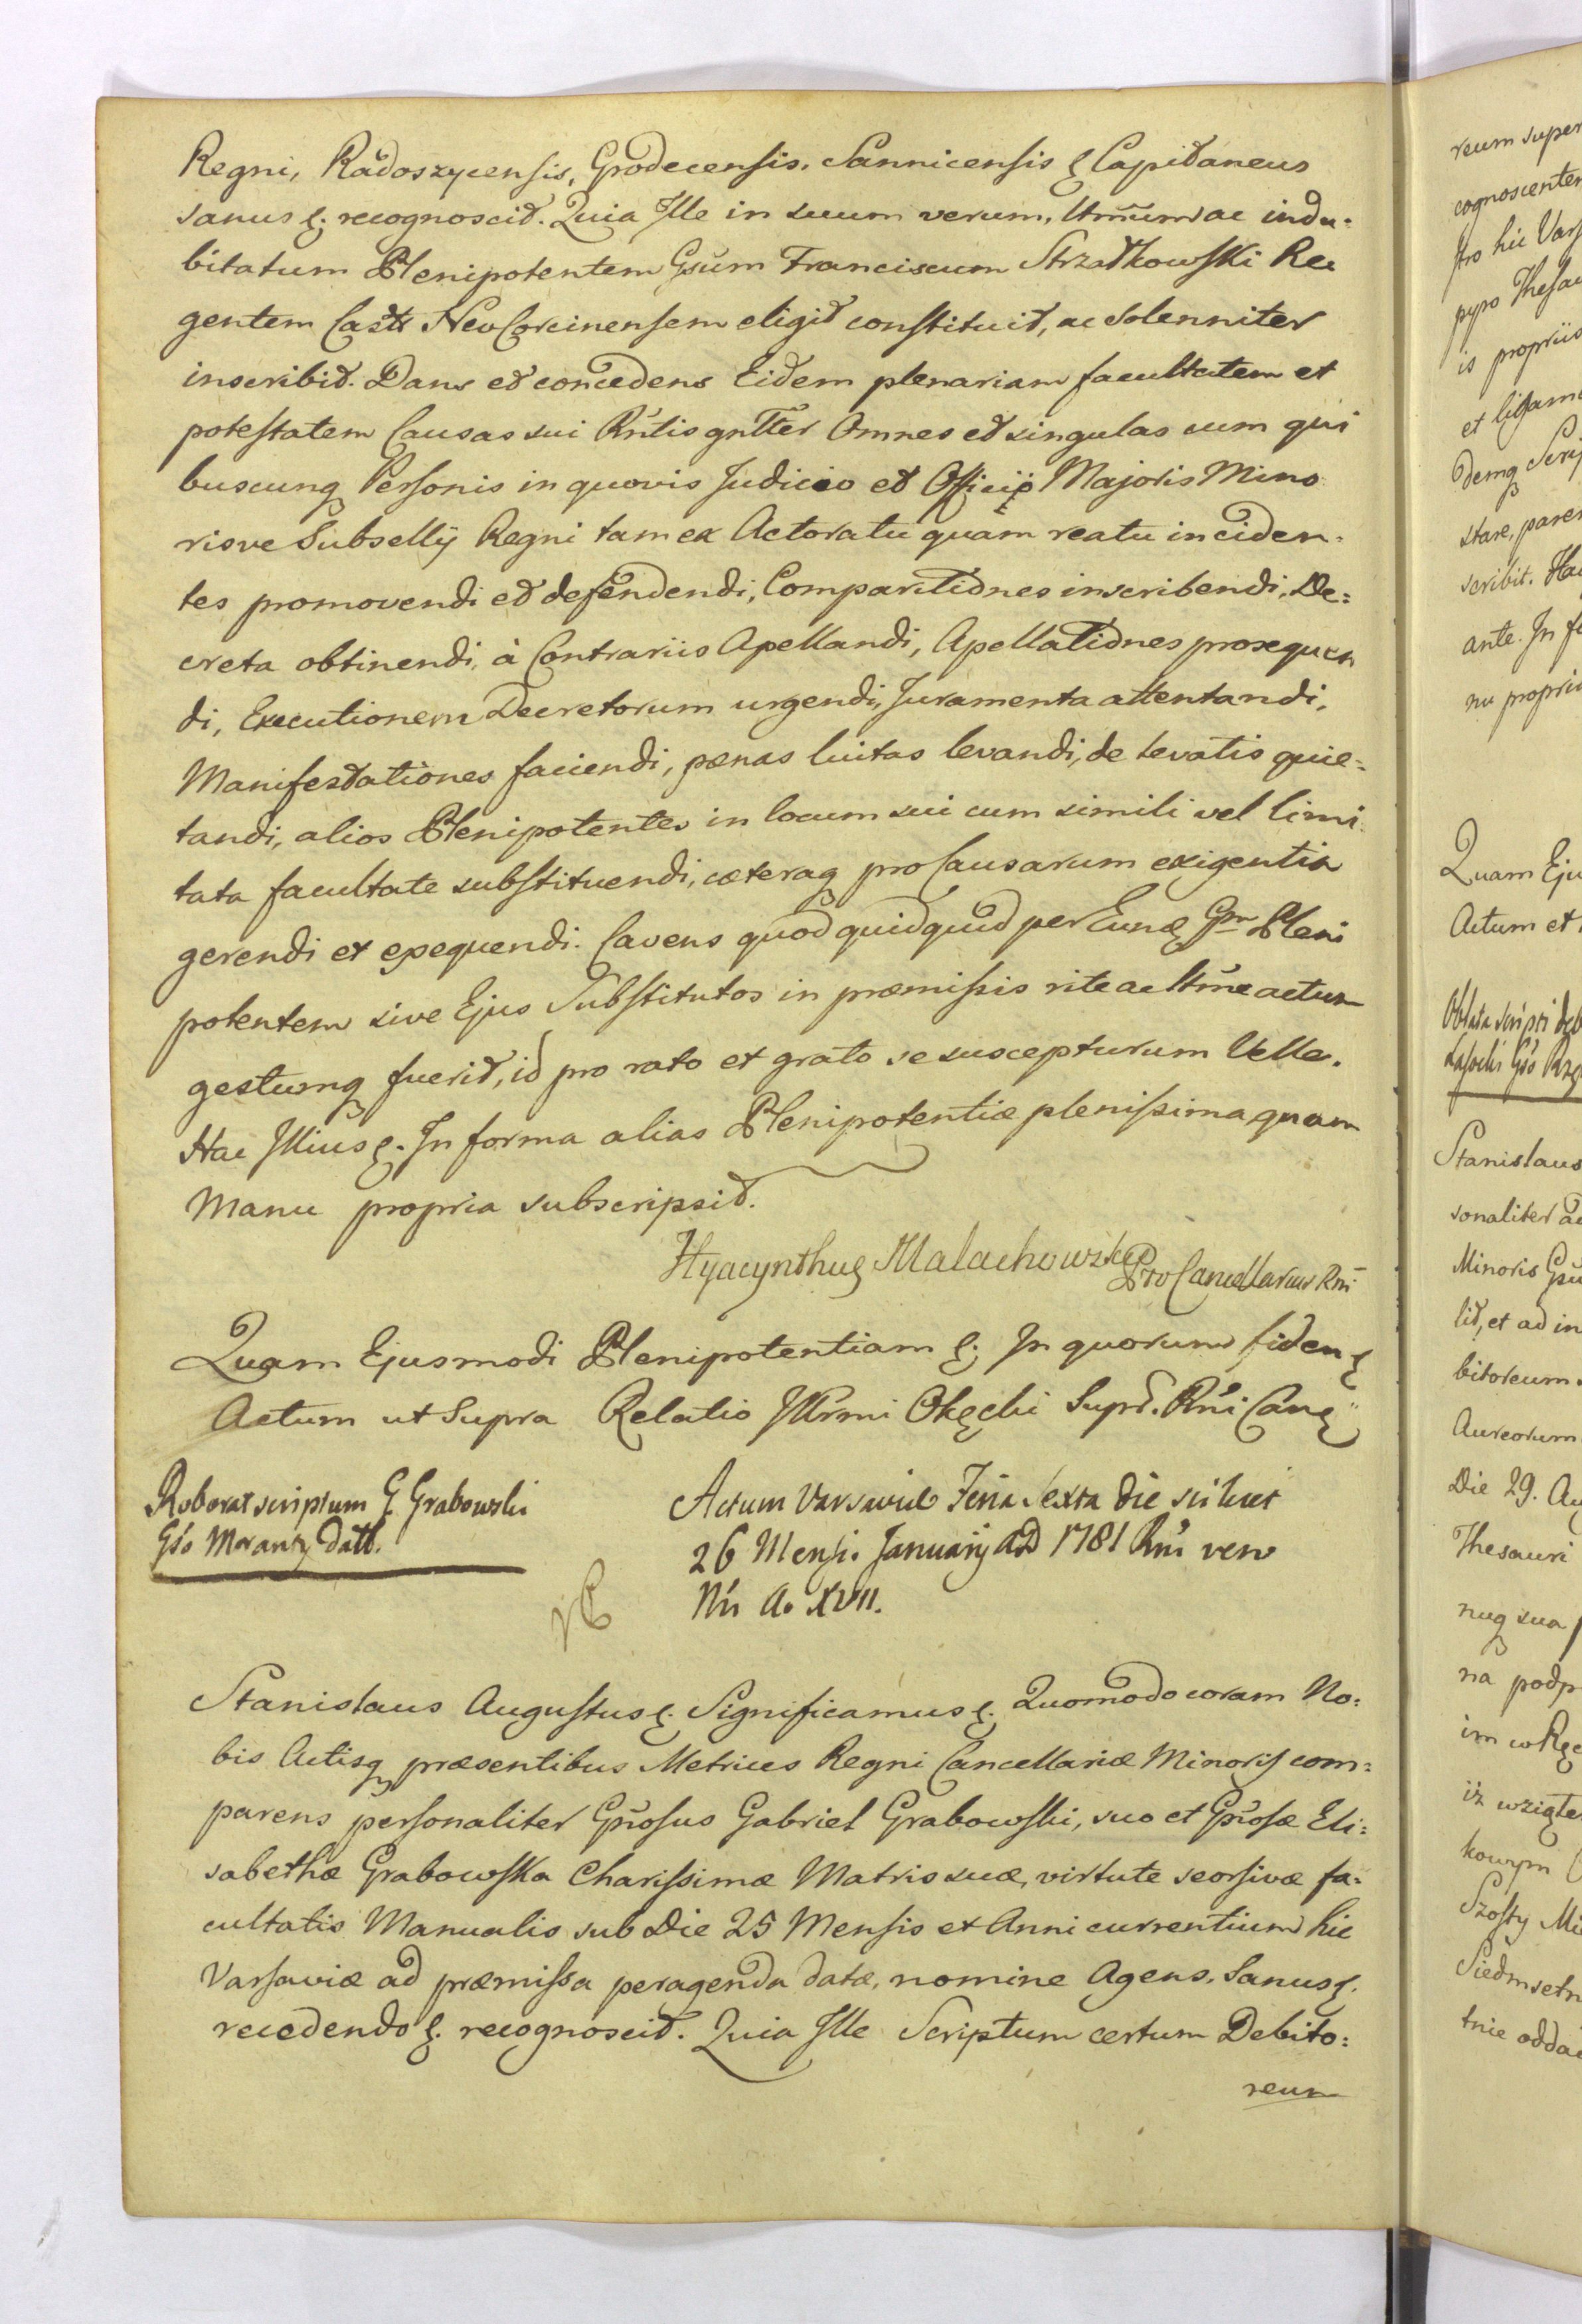 Regni, Radoszycensis, Grodecensis, Sannicensis & Capitaneus
sanus &. recognoscit. Quia Ille in suum verum, lttmum ac indu-
bitatum Plenipotentem Gsum Franciscum Strzałkowski Re
gentem Castr NeoCorcinensem eligit constituit, ac solenniter
inscribit. Dans et concedens Eidem plenariam facultatem et
potestatem Causas sui Rntis gntter Omnes et singulas cum qui
buscunq Personis in quovis Judicio et Officio Majoris Mino
risve Subsellij Regni tam ex Actoratu quam reatu inciden-
tes promovendi et defendendi, Comparitiones inscribendi, De:
creta obtinendi, à Contrariis Apellandi, Apellationes prosequen
di, Executionem Decretorum urgendi, Juramenta attentandi,
Manifestationes faciendi, pænas luitas levandi, de levatis quie-
tandi, alios Plenipotentes in locum sui cum simili vel limi
tata facultate substituendi, cæteraq pro Causarum exigentia
gerendi et exequendi. Cavens quod quidquid per Eund Gm Pleni
potentem sive Ejus Substitutos in præmissis rite ac lttme actum
gestumq fuerit, id pro rato et grato se suscepturum Velle.
Hac Illius &. In forma alias Plenipotentiæ plenissima quam
Manu propria subscripsit.
Hyacynthus Małachowski ProCancellarius Rni
Quam Ejusmodi Plenipotentiam &. In quorum fidem &
Actum ut Supra Relatio Illrmi Okęcki Supr. Rni Canc
Roborat scriptum G Grabowski
Gso Morantz datt.
Actum Varsaviæ Feria Sexta die scilicet
26 Mensi. Januarij AD 1781 Rni vero
Nri A. XVII.
Stanislaus Augustus &. Significamus &. Quomodo coram No:
bis Actisq præsentibus Metrices Regni Cancellariæ Minoris com:
parens personaliter Gnosus Gabriel Grabowski, suo et Gnosæ Eli:
sabethæ Grabowska Charissimæ Matris suæ, virtute seorsivæ fa:
cultatis Manualis sub Die 25 Mensis et Anni currentium hic
Varsaviæ ad præmissa peragenda datæ, nomine Agens, Sanus &.
recedendo &. recognoscit. Quia Ille Scriptum certum Debito:
reum
reum super
cognoscente
stro hic Vars
pypo Thesau
is propriis
et ligam
demq Scri
stare, pare
scribit. Ha
ante. In fo
nu propri
Quam Eju
Actum et
Oblata scripti deb
Stanislaus
sonaliter ac
Minoris Gnu
lit, et ad in
bitoreum
Aureorum
Die 29. Au
Thesauri
nuq sua
na podp
im w Rzę
iż wzięte
kowym
Szosty Mi
Siedmsetn
tnie oddac